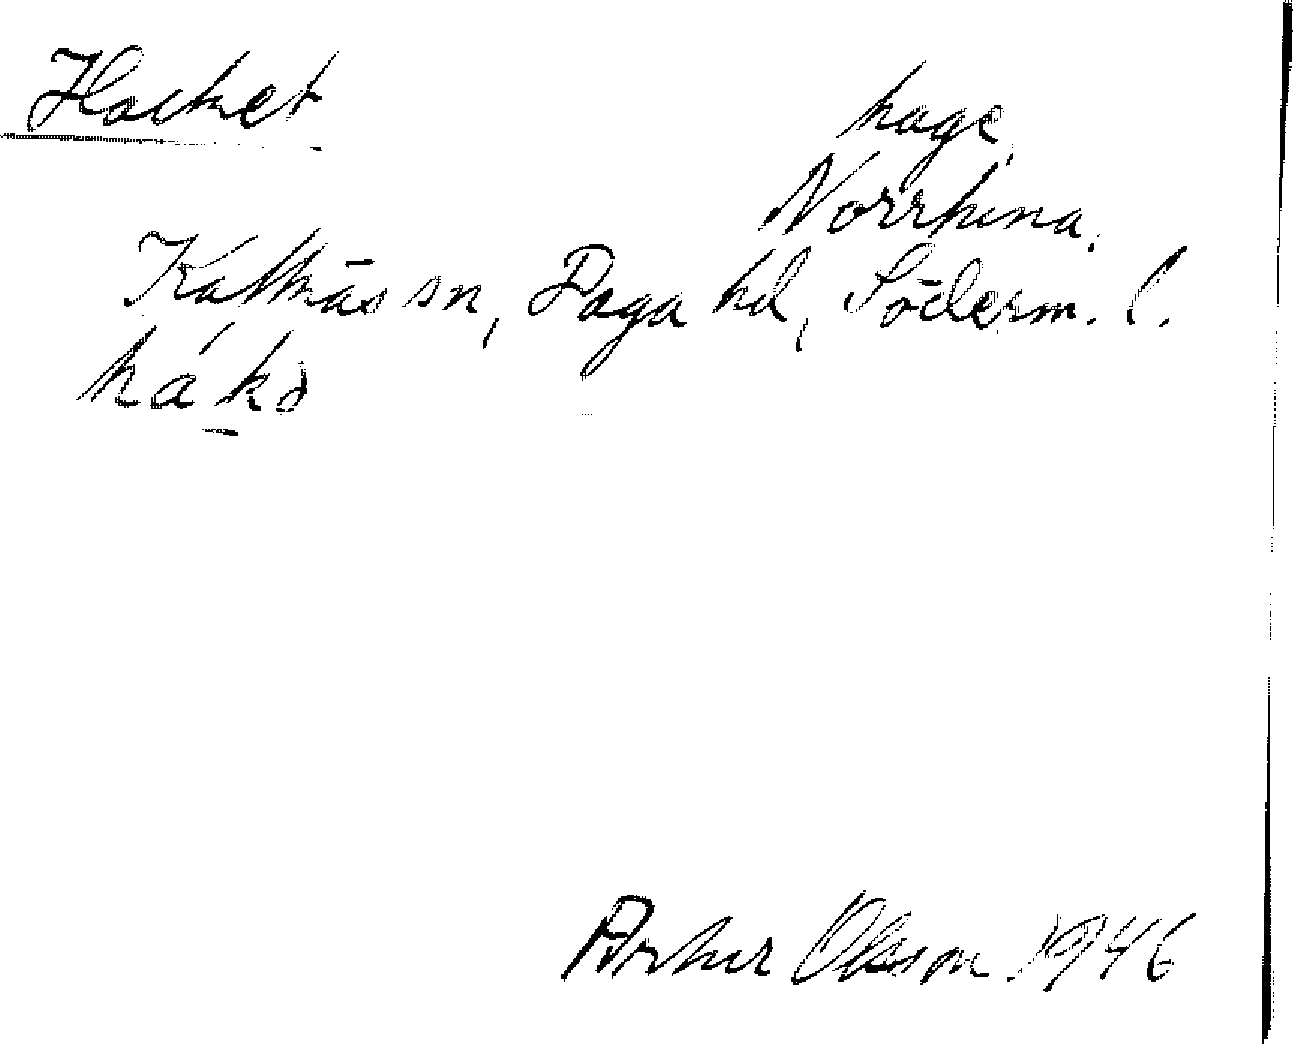 Hacket
hage
Norrkina.
Kattnäs sn, Daga hd, Söderm. l.
hákə
Arthur Olsson 1946